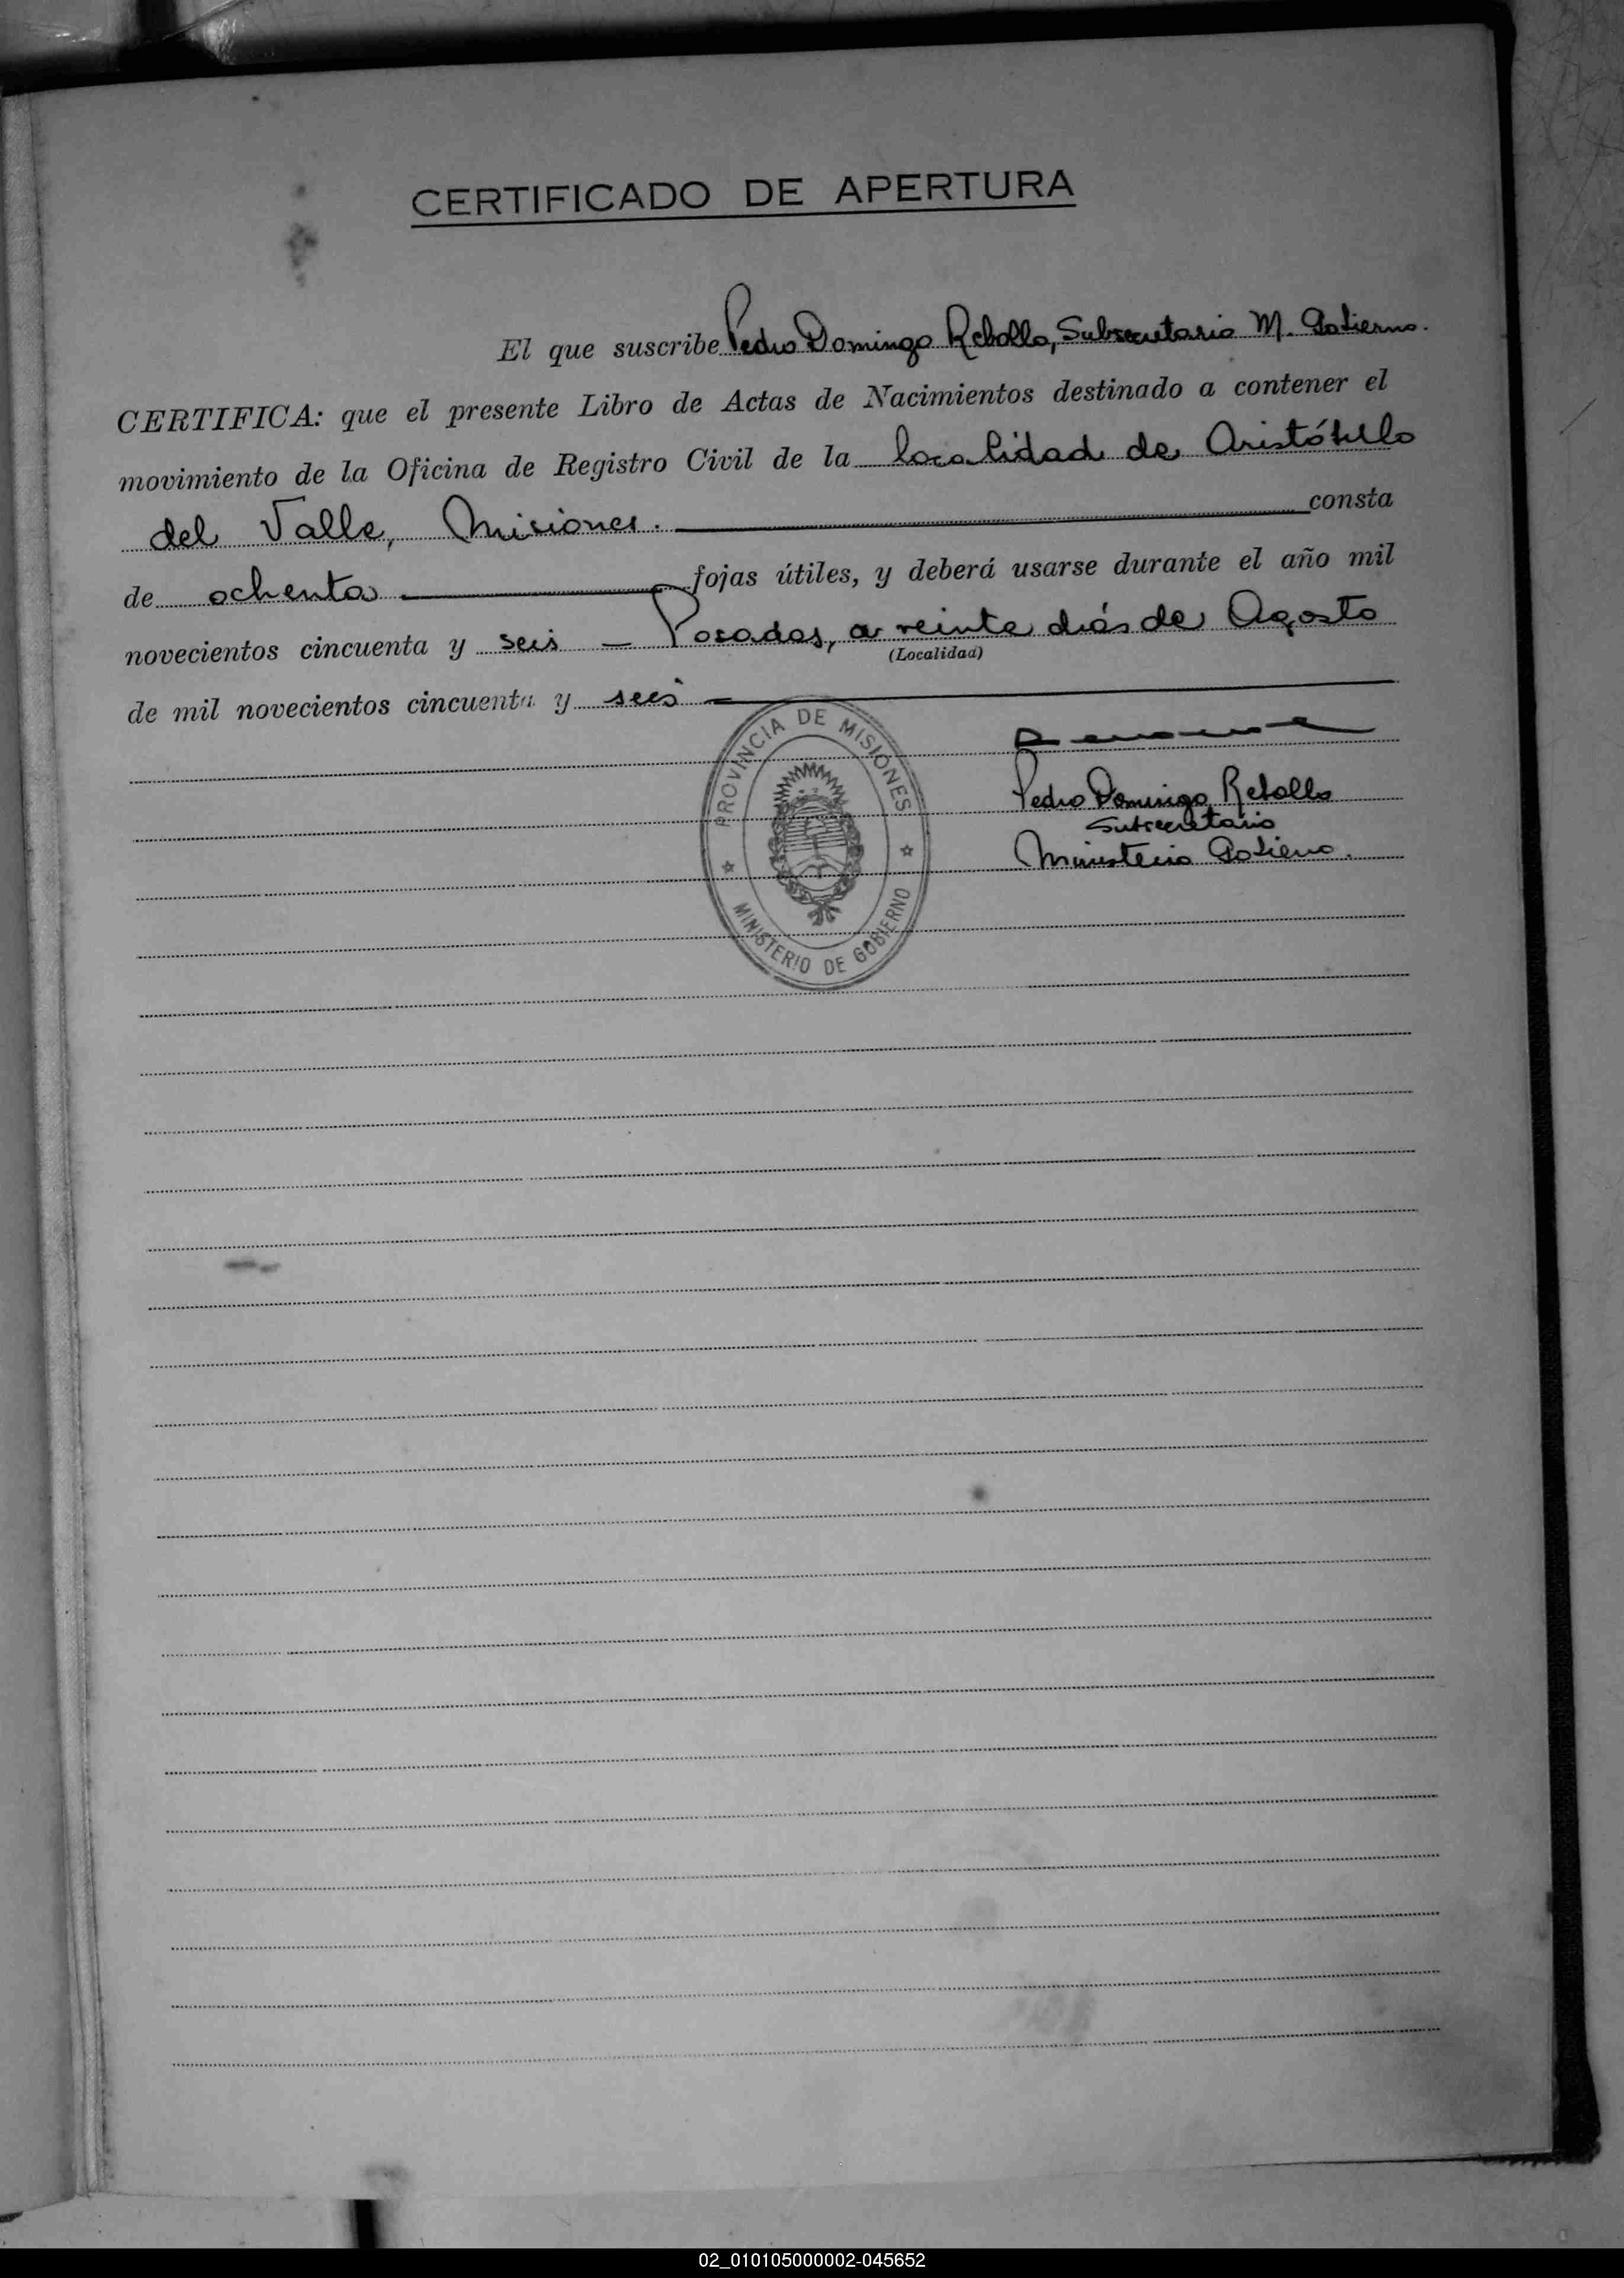 CERTIFICADO DE APERTURA
El que suscribe Pedro Domingo Rebollo, Subsecretario M. Gobierno.
CERTIFICA: que el presente Libro de Actas de Nacimientos destinado a contener el
movimiento de la Oficina de Registro Civil de la localidad de Aristóbulo
del Valle, Misiones. consta
de ochenta fojas útiles, y deberá usarse durante el año mil
novecientos cincuenta y seis — Posadas, a veinte días de Agosto
(Localidad)
de mil novecientos cincuenta y seis
PROVINCIA DE MISIONES
MINISTERIO DE GOBIERNO
Pedro Domingo Rebollo
Subsecretario
Ministerio Gobierno.
02_010105000002-045652